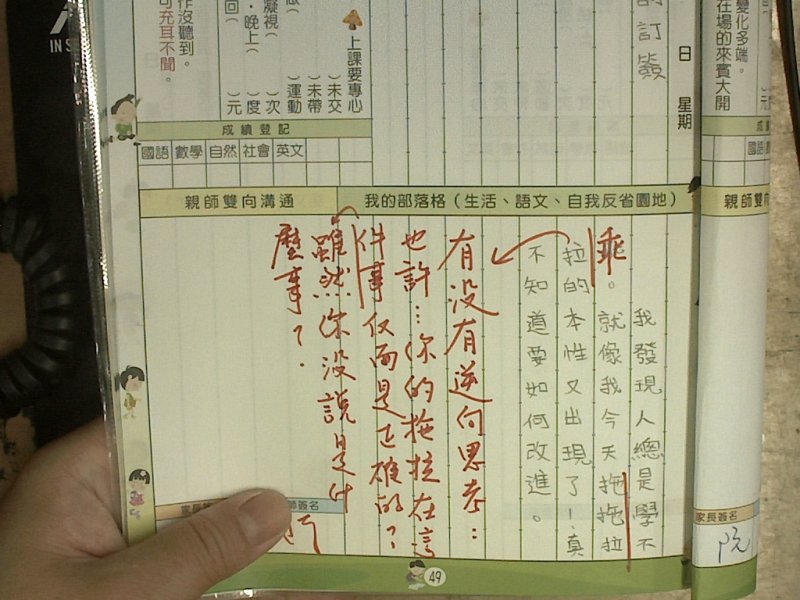 變化多端。
在場的來賓大開
成
國語
親師雙向
家長簽名
阮
訂簽
日 星期
上課要專心
( )未交
( )未帶
( )運動
( )次
( )度
( )元
凝視(
・晚上(
回(
作沒聽到。
可充耳不聞。
IN S
成績登記
國語 數學 自然 社會 英文
親師雙向溝通
我的部落格(生活、語文、自我反省園地)
我發現人總是學不
乖。就像我今天拖拖拉
拉的本性又出現了!真
不知道要如何改進。
有沒有逆向思考:
也許…你的拖拉在這
件事反而是正確的?
雖然你沒說是什
麼事了.
家長
師簽名
49